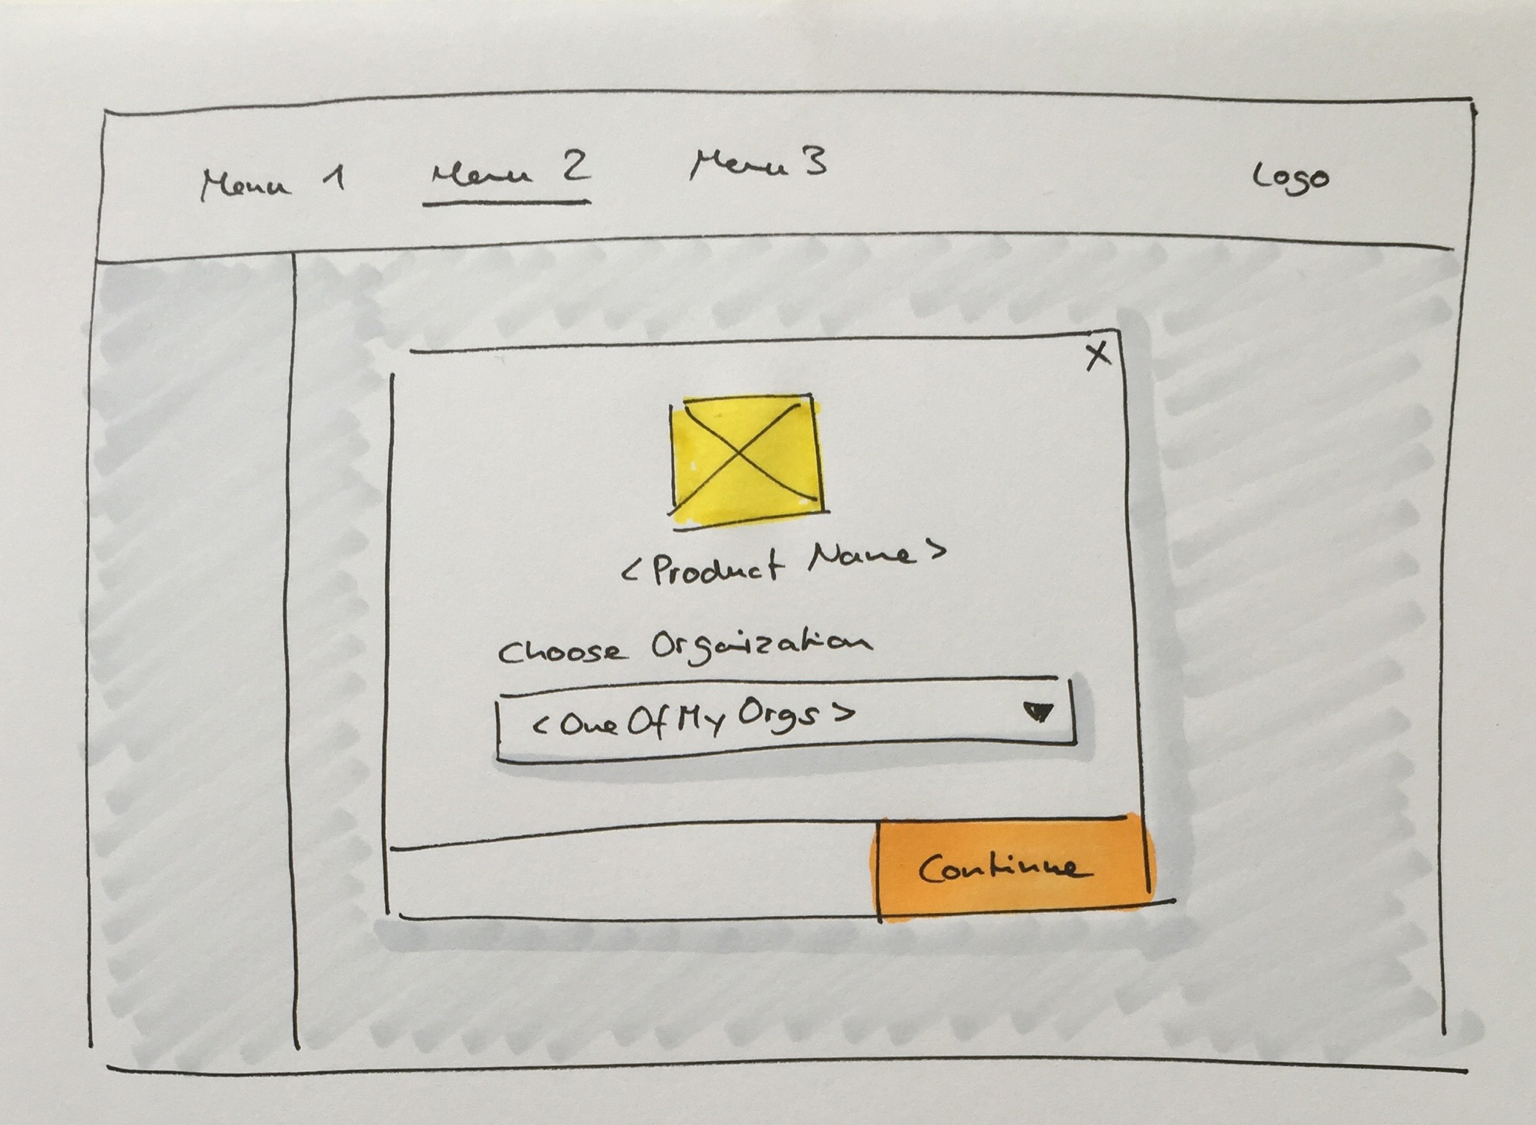 Menu 1 Menu 2 Menu 3 Logo
X
<Product Name>
Choose Organization
<One Of My Orgs>
Continue